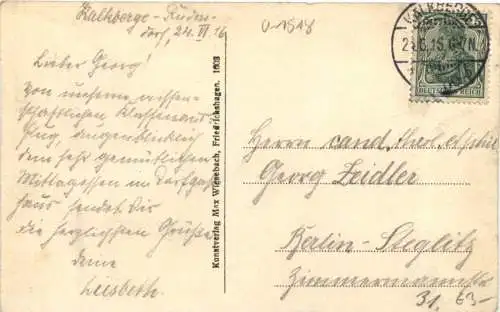 Kalkberge-Rüders-
dorf, 24. VI. 16
0-1818
Lieber Georg!
Von unserm wissen-
schaftlichen Klassenaus-
flug, augenblicklich
dem sehr gemütlichen
Mittagessen im Dorfgast-
haus sendet Dir
die herzlichsten Grüße
deine
Liesbeth.
Kunstverlag Max Wiesebach, Friedrichshagen. 1603
KALKBERGE
DEUTSCHES REICH
Herrn cand. theol. et phil.
Georg Zeidler
Berlin-Steglitz
Zimmermannstr.
31. 63-